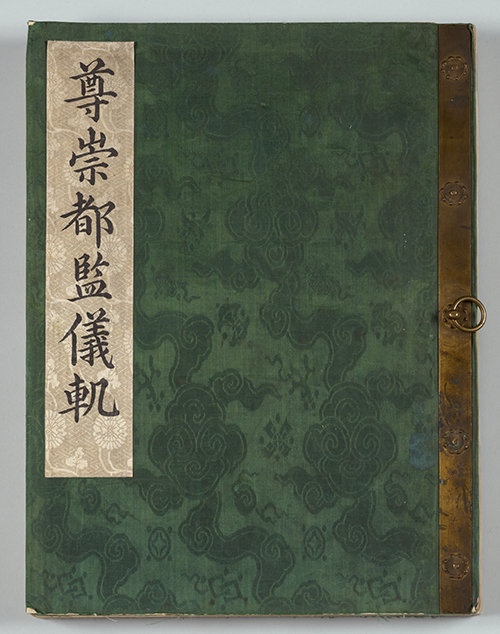 尊崇都監儀軌